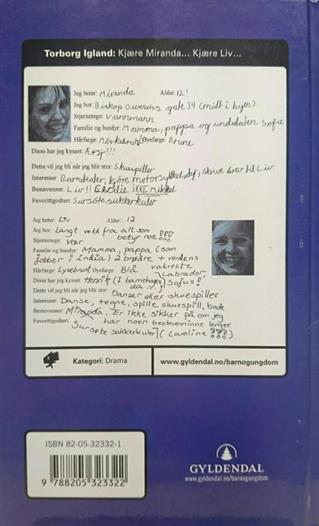 Torborg Igland: Kjære Miranda... Kjære Liv...
Jeg heter: Miranda Alder: 12!
Jeg bor: Biskop gate 34 (midt i byen)
Stjernetegn: Vannmann
Familie og husdyr: Mamma, pappa og undulaten Sofie
Hårfarge: Mørkebrun Øyefarge: Brune
Disse har jeg kysset: Æsj!!!
Dette vil jeg bli når jeg blir stor: Skuespiller
Interesser: skrive brev til Liv.
Bestevenner: Liv!! IKKE Mikkel
Favorittgodteri: Sursøte sukkerkuler
Jeg heter: Liv Alder: 12
Jeg bor: Langt vekk fra alt som
Stjernetegn: Vær betyr noe!!!
Familie og husdyr: Mamma, pappa (som
jobber i India) 2 brødre + verdens
Hårfarge: Lysebrun Øyefarge: Blå vakreste
Labrador,
Disse har jeg kysset: Henrik (I barnehagen) Sofus!
Dette vil jeg bli når jeg blir stor: Danser eller skuespiller
Interesser: Danse, tegne, spille skuespill, bade
Bestevenner: Miranda. Er ikke sikker på om jeg
har noen bestevenninne lenger
Favorittgodteri: Sursøte sukkerkuler (Caroline???)
Kategori: Drama
www.gyldendal.no/barnogungdom
ISBN 82-05-32332-1
9 788205 323322
GYLDENDAL
www.gyldendal.no/barnogungdom